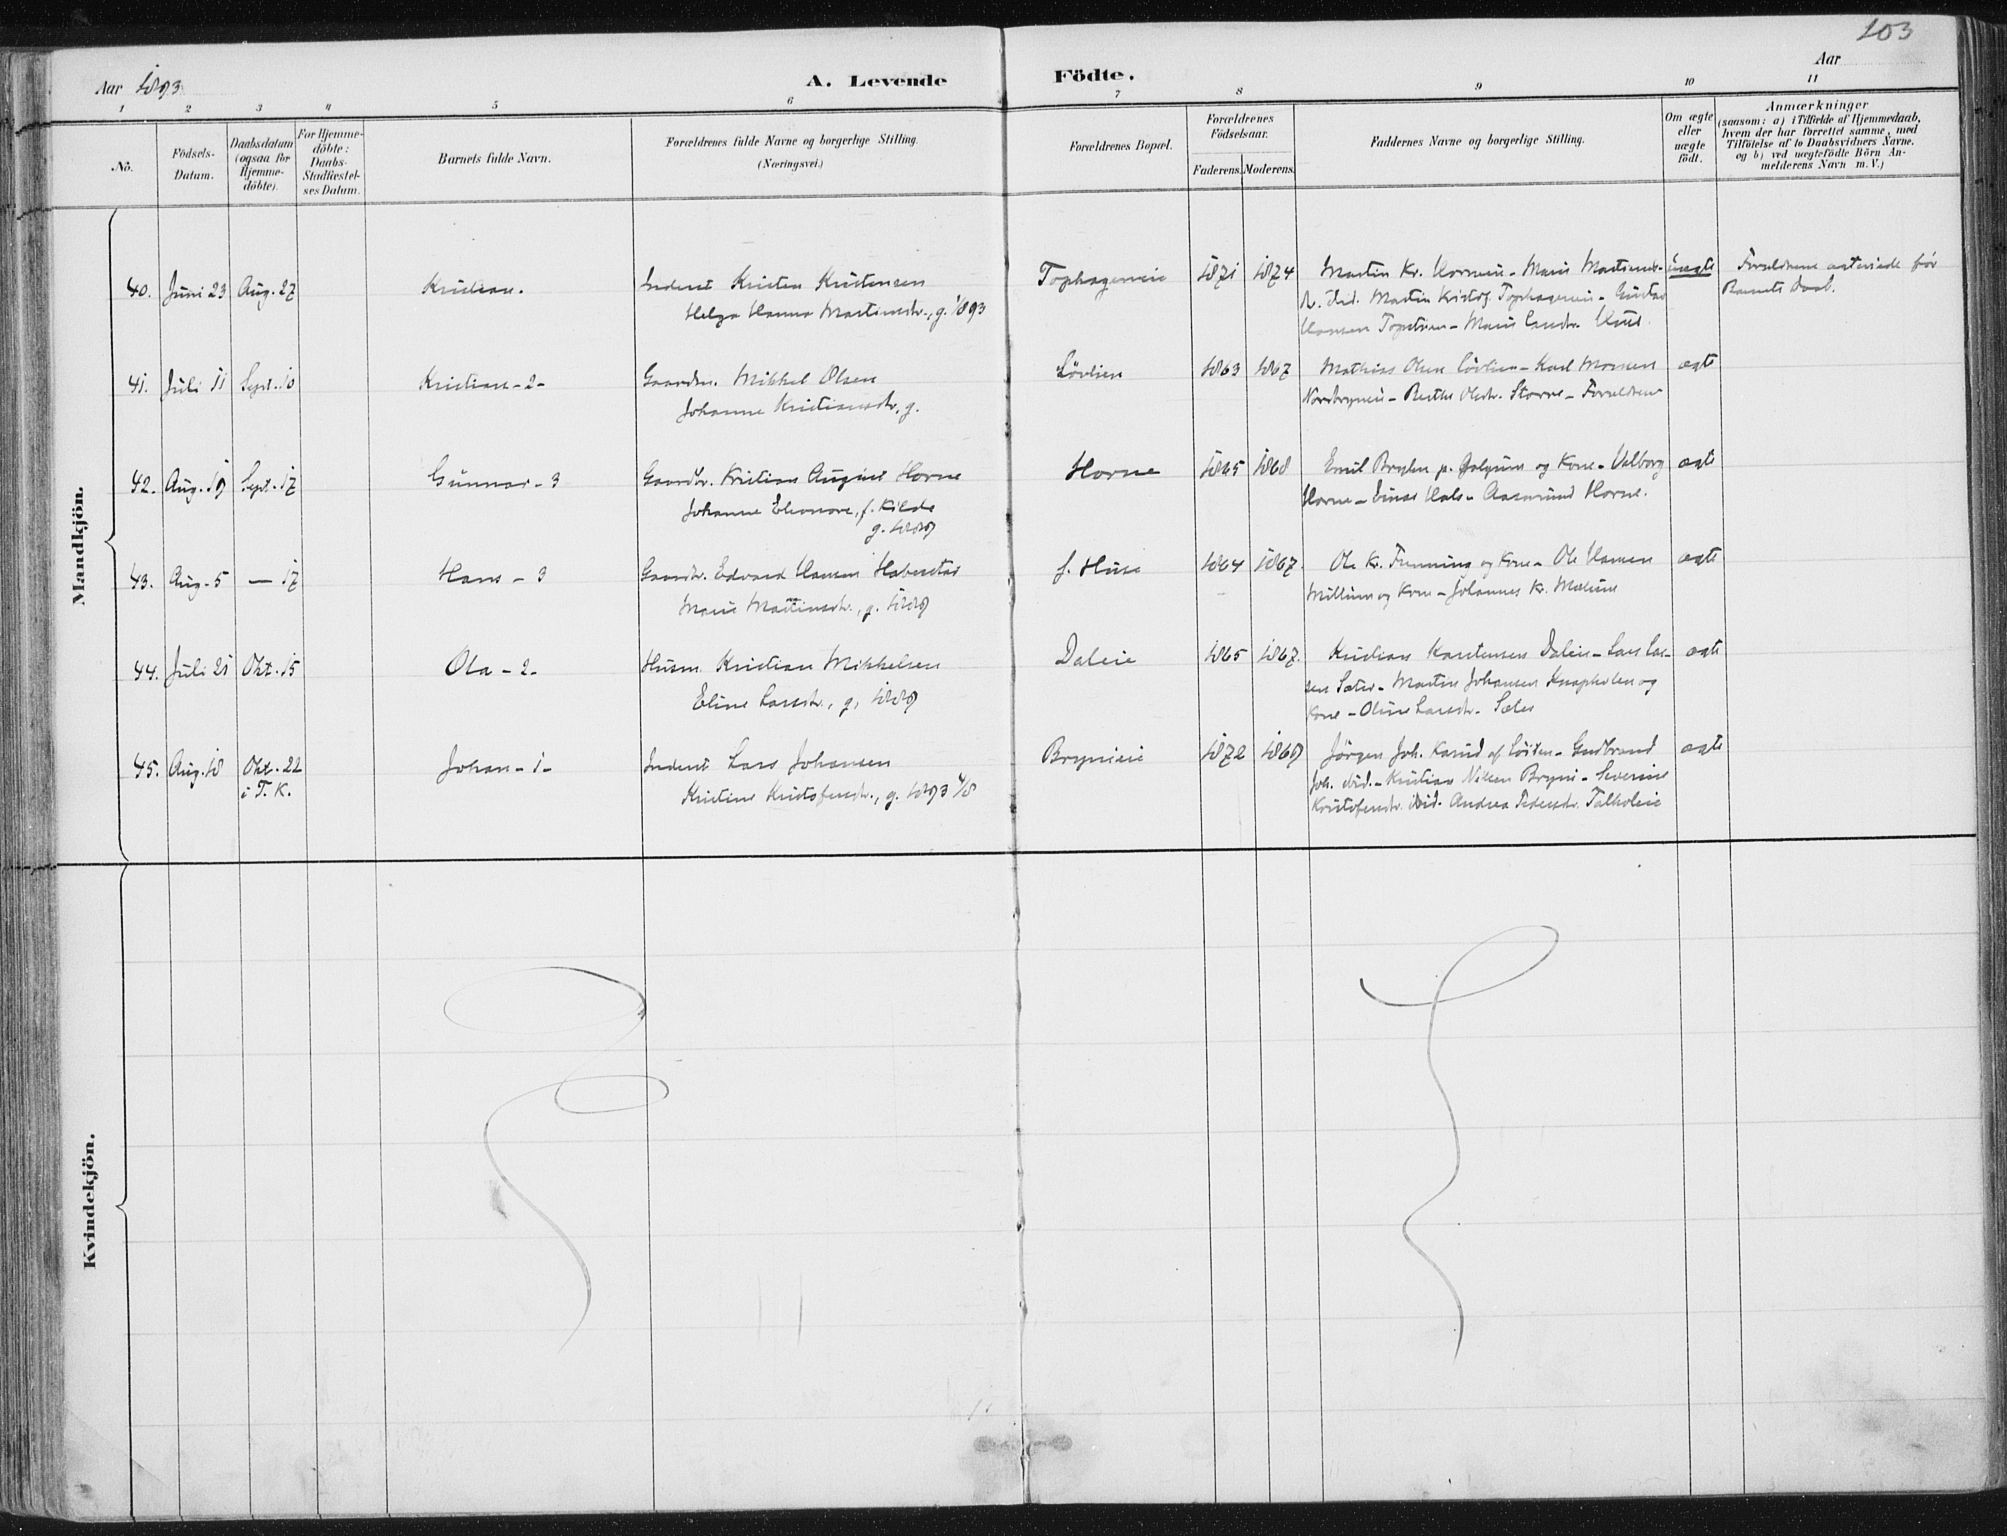 103
Aar 1893
A. Levende Födte.
Aar
1 2 3 4 5 6 7 8 9 10 11
No.
Födsels-
Datum.
Daabsdatum
(ogsaa for
Hjemme-
döbte).
For Hjemme-
döbte:
Daabs-
Stadfæstel-
ses Datum.
Barnets fulde Navn.
Forældrenes fulde Navne og borgerlige Stilling.
(Næringsvei.)
Forældrenes Bopæl.
Forældrenes
Födselsaar.
Faderens. Moderens.
Faddernes Navne og borgerlige Stilling.
Om ægte
eller
uægte
födt.
Anmærkninger
(saasom: a) i Tilfælde af Hjemmedaab,
hvem der har forrettet samme, med
Tilföielse af to Daabsvidners Navne.
og b) ved uægtefödte Börn An-
melderens Navn m. V.)
Mandkjön.
40. Juni 23 Aug. 27 Kristian.
Inderst Kristen Kristensen
Helga Hanna Martinsdr., g. 1893
Tophageneie 1871 1874
Martin Kr. Horneie - Maris Martinsdr.
ibid. Martin Kristof. Tophageneie - Gustav
Hansen Topstuen - Maris Larsdr.
uægte
Forældrene ægteviede før
Barnets Daab.
41. Juli 11 Sept. 10 Kristian - 2 -
Gaardm. Mikkel Olsen
Johanne Kristiansdr, g.
Lövlien 1863 1867
Mathias Olsen Lövlien - Karl
Berthe Olsdr. Storne - Forældrene
ægte
42. Aug. 19 Sept. 17 Gunnar - 3
Gaardbr. Kristian August Horne
Johanne Eleonore, f. Kilde
g. 1889
Horne 1865 1868
Emil og Kone - Valborg
Horne - Einar Hals - Aasmund Horne.
ægte
43. Aug. 5 — 17 Hans - 3
Gaardbr. Edvard Hansen
Maris Martinsdr., g. 1889
f. Huse 1864 1867.
Ole Kr. og Kone - Ole Hansen
og Kone - Johannes Kr.
ægte
44. Juli 21 Okt. 15 Ola - 2 -
Husm. Kristian Mikkelsen
Eline Larsdr., g. 1889
Daleie 1865 1867.
Kristian Karstensen Daleie - Lars Lar-
sen Sæter - Martin Johansen Knapholen og
Kone - Oline Larsdr. Sæter
ægte
45. Aug. 18 Okt. 22
i T. K.
Johan - 1 -
Inderst Lars Johansen
Kristine Kristofersdr., g. 1893 4/8
Brynieie 1872 1869
Jörgen Joh. af Löiten - Gudbrand
Joh. ibid. - Kristian Nilsen Bryni - Severine
Kristofersdr. ibid. Andrea Pedersdr.
ægte
Kvindekjön.